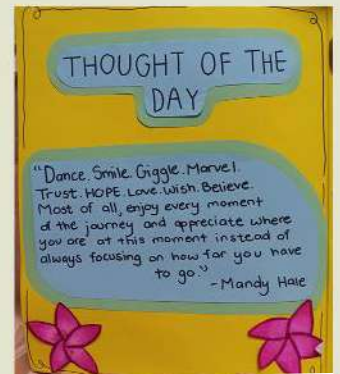 THOUGHT OF THE
DAY
"Dance. Smile. Giggle. Marvel.
Trust. HOPE. Love. Wish. Believe.
Most of all, enjoy every moment
of the journey and appreciate where
you are at this moment instead of
always focusing on how far you have
to go."
- Mandy Hale